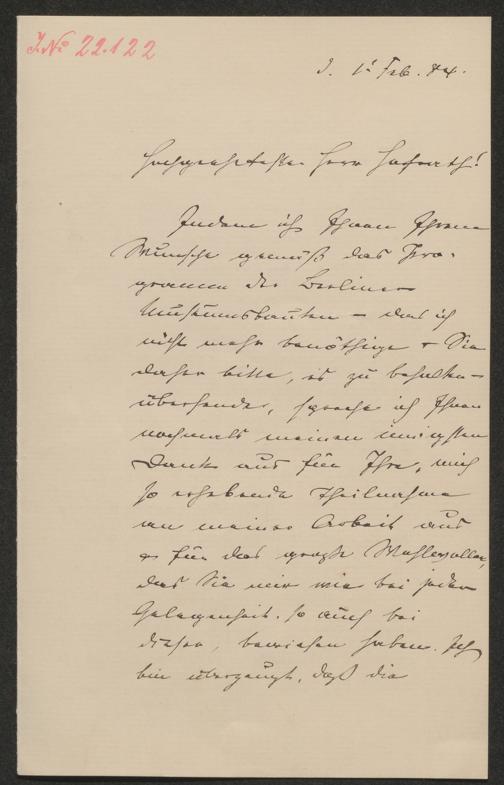 J.No 22.122
J. 1t Feb. 84.
Hochgeehrtester Herr Hofrath!
Indem ich Ihnen Ihrem
Wunsche gemäß das Pro-
gramm der Berliner
Museumsbauten – das ich
nicht mehr benöthige + Sie
daher bitte, es zu behalten –
übersende, spreche ich Ihnen
nochmals meinen innigsten
Dank aus für Ihre, mich
so erhebende Theilnahme
an meiner Arbeit aus
+ für das große Wohlwollen,
das Sie mir wie bei jeder
Gelegenheit. so auch bei
dieser, bewiesen haben. Ich
bin überzeugt, daß die